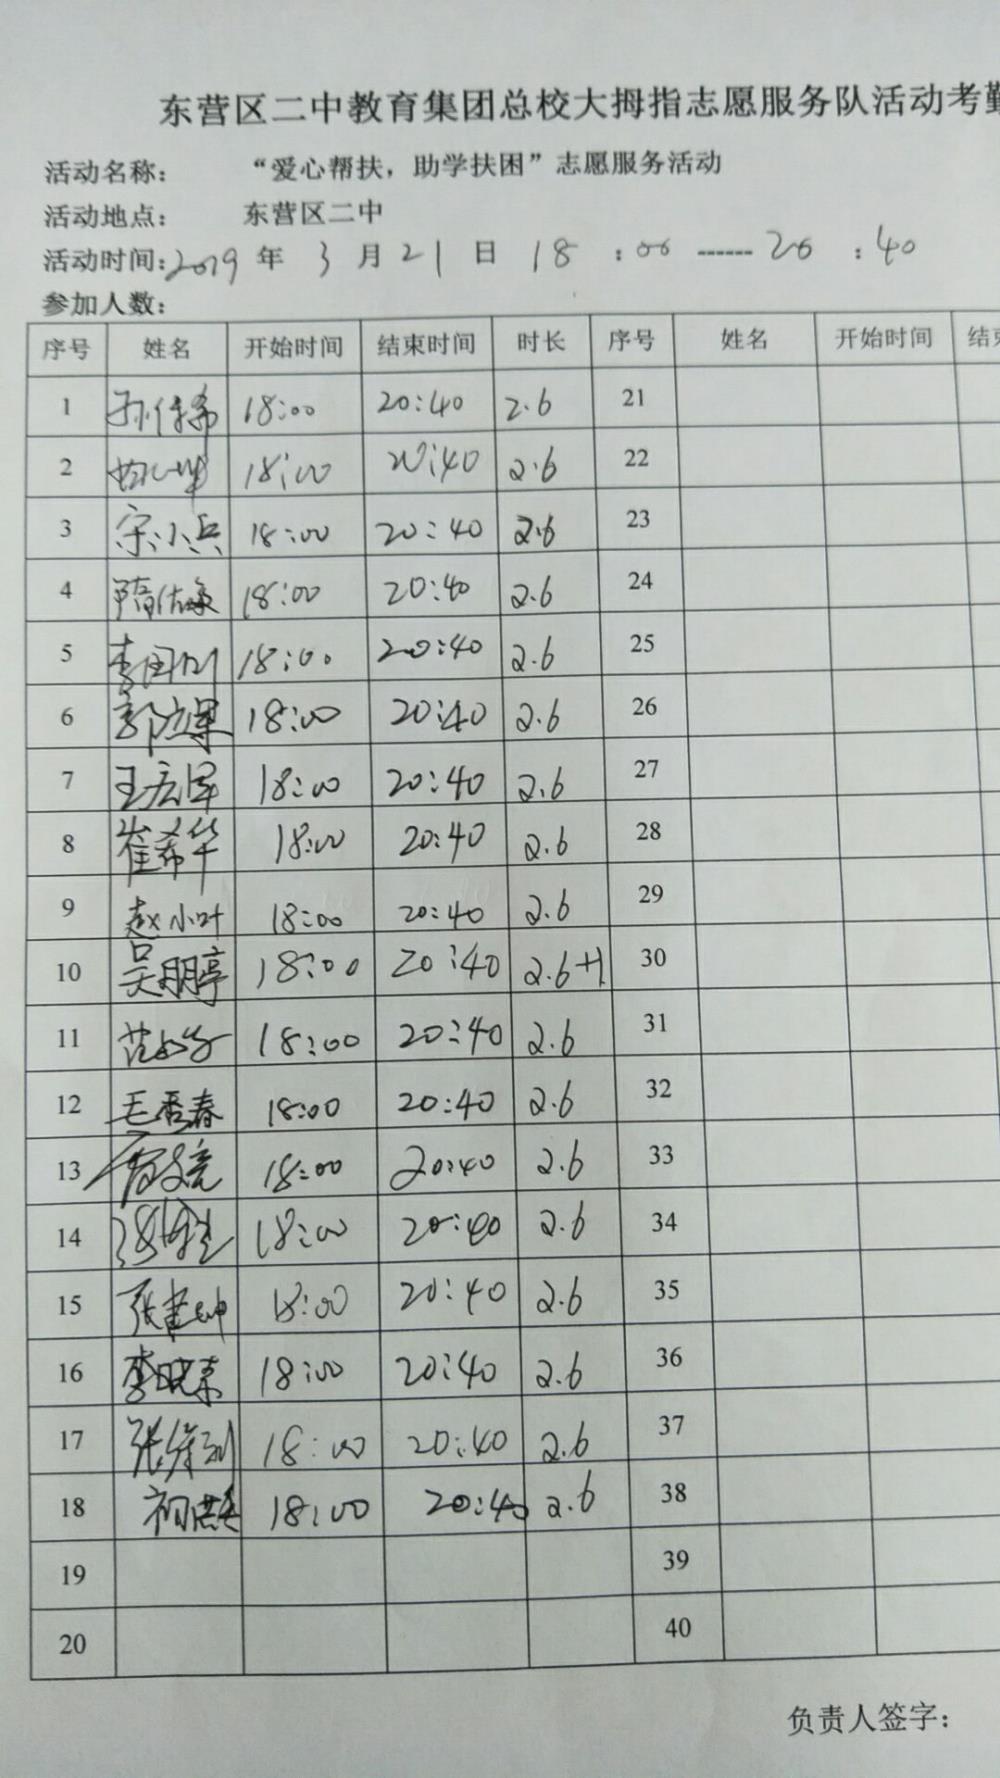 东营区二中教育集团总校大拇指志愿服务队活动考勤
活动名称： “爱心帮扶，助学扶困”志愿服务活动
活动地点： 东营区二中
活动时间：2019 年 3 月 21 日 18 ：00 ------ 20 ：40
参加人数：
序号 姓名 开始时间 结束时间 时长 序号 姓名 开始时间 结束
1 18:00 20:40 2.6 21
2 18:00 20:40 2.6 22
3 宋小兵 18:00 20:40 2.6 23
4 18:00 20:40 2.6 24
5 18:00 20:40 2.6 25
6 18:00 20:40 2.6 26
7 王宏军 18:00 20:40 2.6 27
8 崔希华 18:00 20:40 2.6 28
9 赵小叶 18:00 20:40 2.6 29
10 吴明亭 18:00 20:40 2.6+1 30
11 18:00 20:40 2.6 31
12 毛香春 18:00 20:40 2.6 32
13 18:00 20:40 2.6 33
14 18:00 20:40 2.6 34
15 18:00 20:40 2.6 35
16 18:00 20:40 2.6 36
17 18:00 20:40 2.6 37
18 18:00 20:40 2.6 38
19 39
20 40
负责人签字：